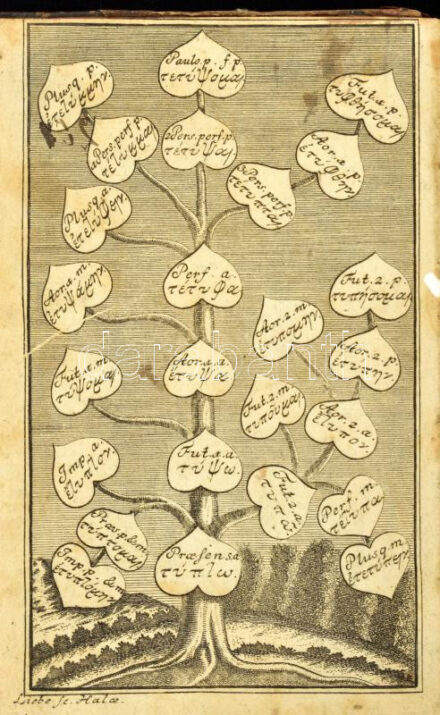 Paulo p. f p.
τετύψομαι
Plusq. p.
ἐτετύμμην
1 Pers. perf. p.
τέτυμμαι
2 Pers. perf. p.
τέτυψαι
3 Pers. perf. p.
τέτυπται
Fut. 1. p.
τυφθήσομαι
Aor. 1. p.
ἐτύφθην
Plusq. a.
ἐτετύφειν
Perf. a.
τέτυφα
Fut. 2. p.
τυπήσομαι
Aor. 1. m.
ἐτυψάμην
Aor. 2. m.
ἐτυπόμην
Aor. 2. p.
ἐτύπην
Fut. 1. m.
τύψομαι
Aor. 1. a.
ἔτυψα
Fut. 2. m.
τυπουμαι
Aor. 2. a.
ἔτυπον
Imp. a.
ἔτυπτον
Fut. 1. a.
τύψω
Fut. 2. a.
τυπῶ
Perf. m.
τέτυπα
Præs. p. & m.
τύπτομαι
Imp. p. & m.
ἐτυπτόμην
Præsens a.
τύπτω
Plusq. m.
ἐτετύπειν
darabanth
Liebe sc. Halæ.